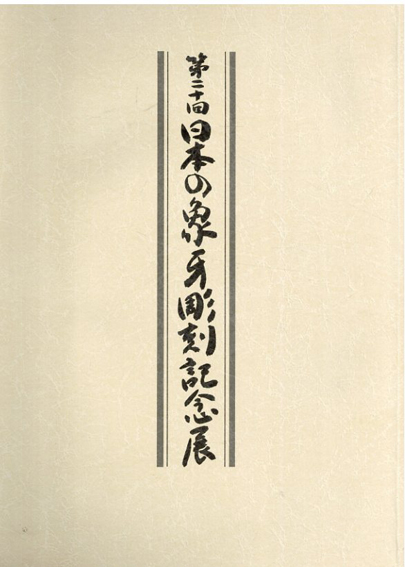 第二十回日本の象牙彫刻記念展